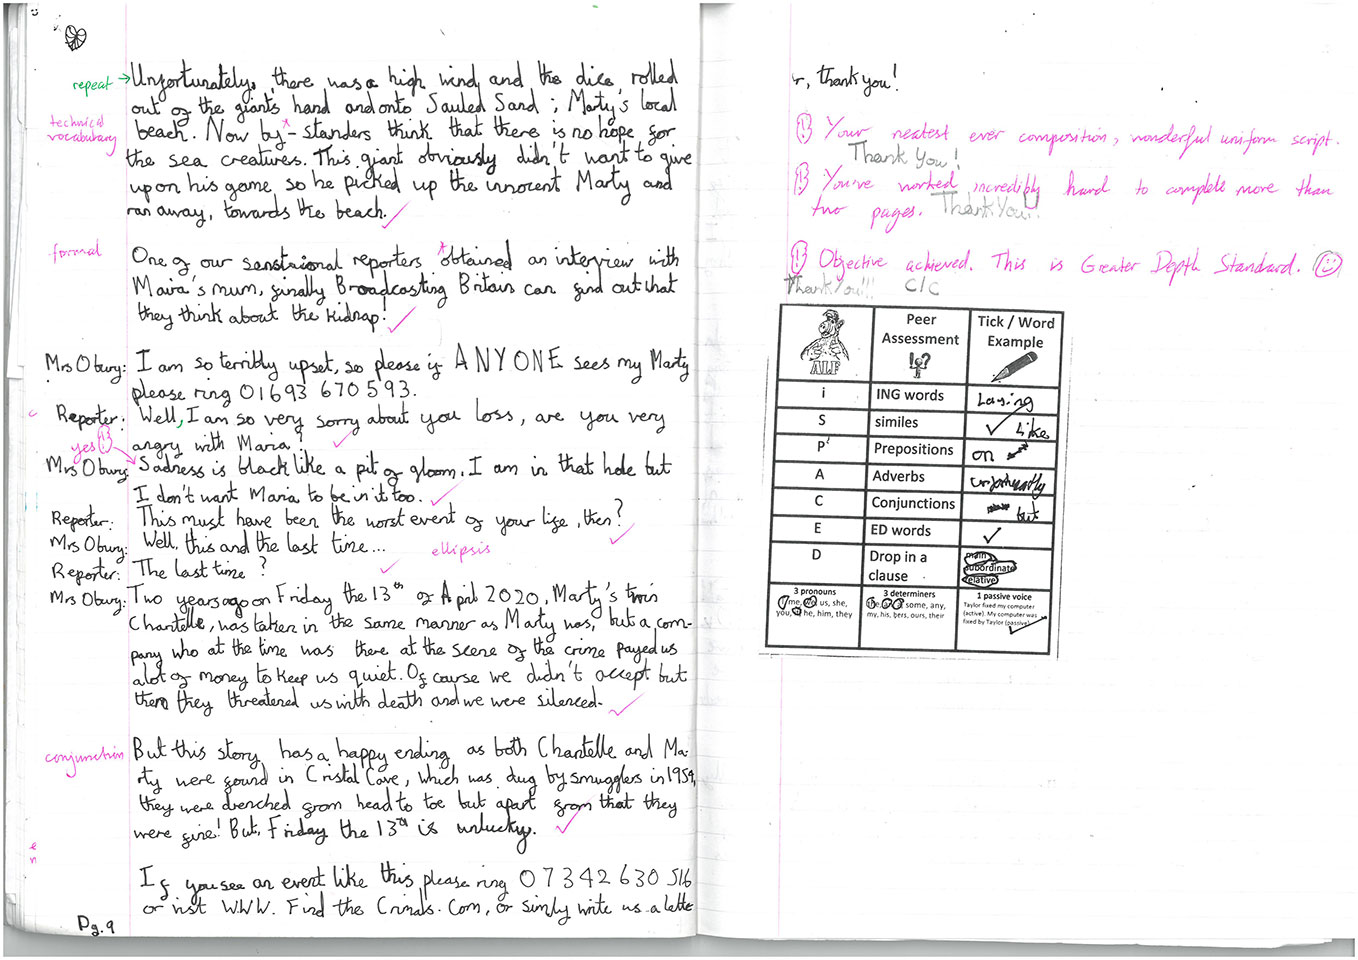 repeat → Unfortunately, there was a high wind and the dice rolled
out of the giants hand and onto Sauled Sand ; Marty's local
technical vocabulary
beach. Now by-standers think that there is no hope for
the sea creatures. This giant obviously didn't want to give
upon his game, so he picked up the innocent Marty and
ran away, towards the beach.
formal
One of our senstsional reporters obtained an interview with
Maria's mum, finally Broadcasting Britain can find out what
they think about the kidnap!
Mrs Obury: I am so terribly upset, so please if ANYONE sees my Marty
please ring 01693 670593.
Reporter: Well, I am so very sorry about you loss, are you very
angry with Maria?
yes
Mrs Obury Sadness is black like a pit of gloom. I am in that hole but
I don't want Maria to be in it too.
Reporter: This must have been the worst event of your life, then?
Mrs Obury: Well, this and the last time...
ellipsis
Reporter: The last time?
Mrs Obury: Two years ago on Friday the 13th of April 2020, Marty's twin
Chantelle, was taken in the same manner as Marty was, but a com-
pany who at the time was there at the scene of the crime payed us
alot of money to keep us quiet. Of course we didn't accept but
then they threatened us with death and we were silenced.
conjunction But this story has a happy ending as both Chantelle and Ma-
rty were found in Cristal Cave, which was dug by smugglers in 1954,
they were drenched from head to toe but apart from that they
were fine! But, Friday the 13th is unlucky.
If you see an event like this please ring 07342630516
or visit WWW. Find the Crimals. Com, or simply write us a lette
Pg. 9
r, thank you!
Your neatest ever composition, wonderful uniform script.
Thank You!
You've worked incredibly hard to complete more than
two pages. Thank You!!
Objective achieved. This is Greater Depth Standard.
Thank You!!! C/C
ALF
Peer Assessment
Tick / Word Example
i ING words Laying
S similes Like
P Prepositions on
A Adverbs unfortunatly
C Conjunctions but
E ED words
D Drop in a clause main subordinate relative
3 pronouns
I, me, we, us, she,
you, it, he, him, they
3 determiners
the, a, an, some, any,
my, his, hers, ours, their
1 passive voice
Taylor fixed my computer
(active). My computer was
fixed by Taylor (passive)